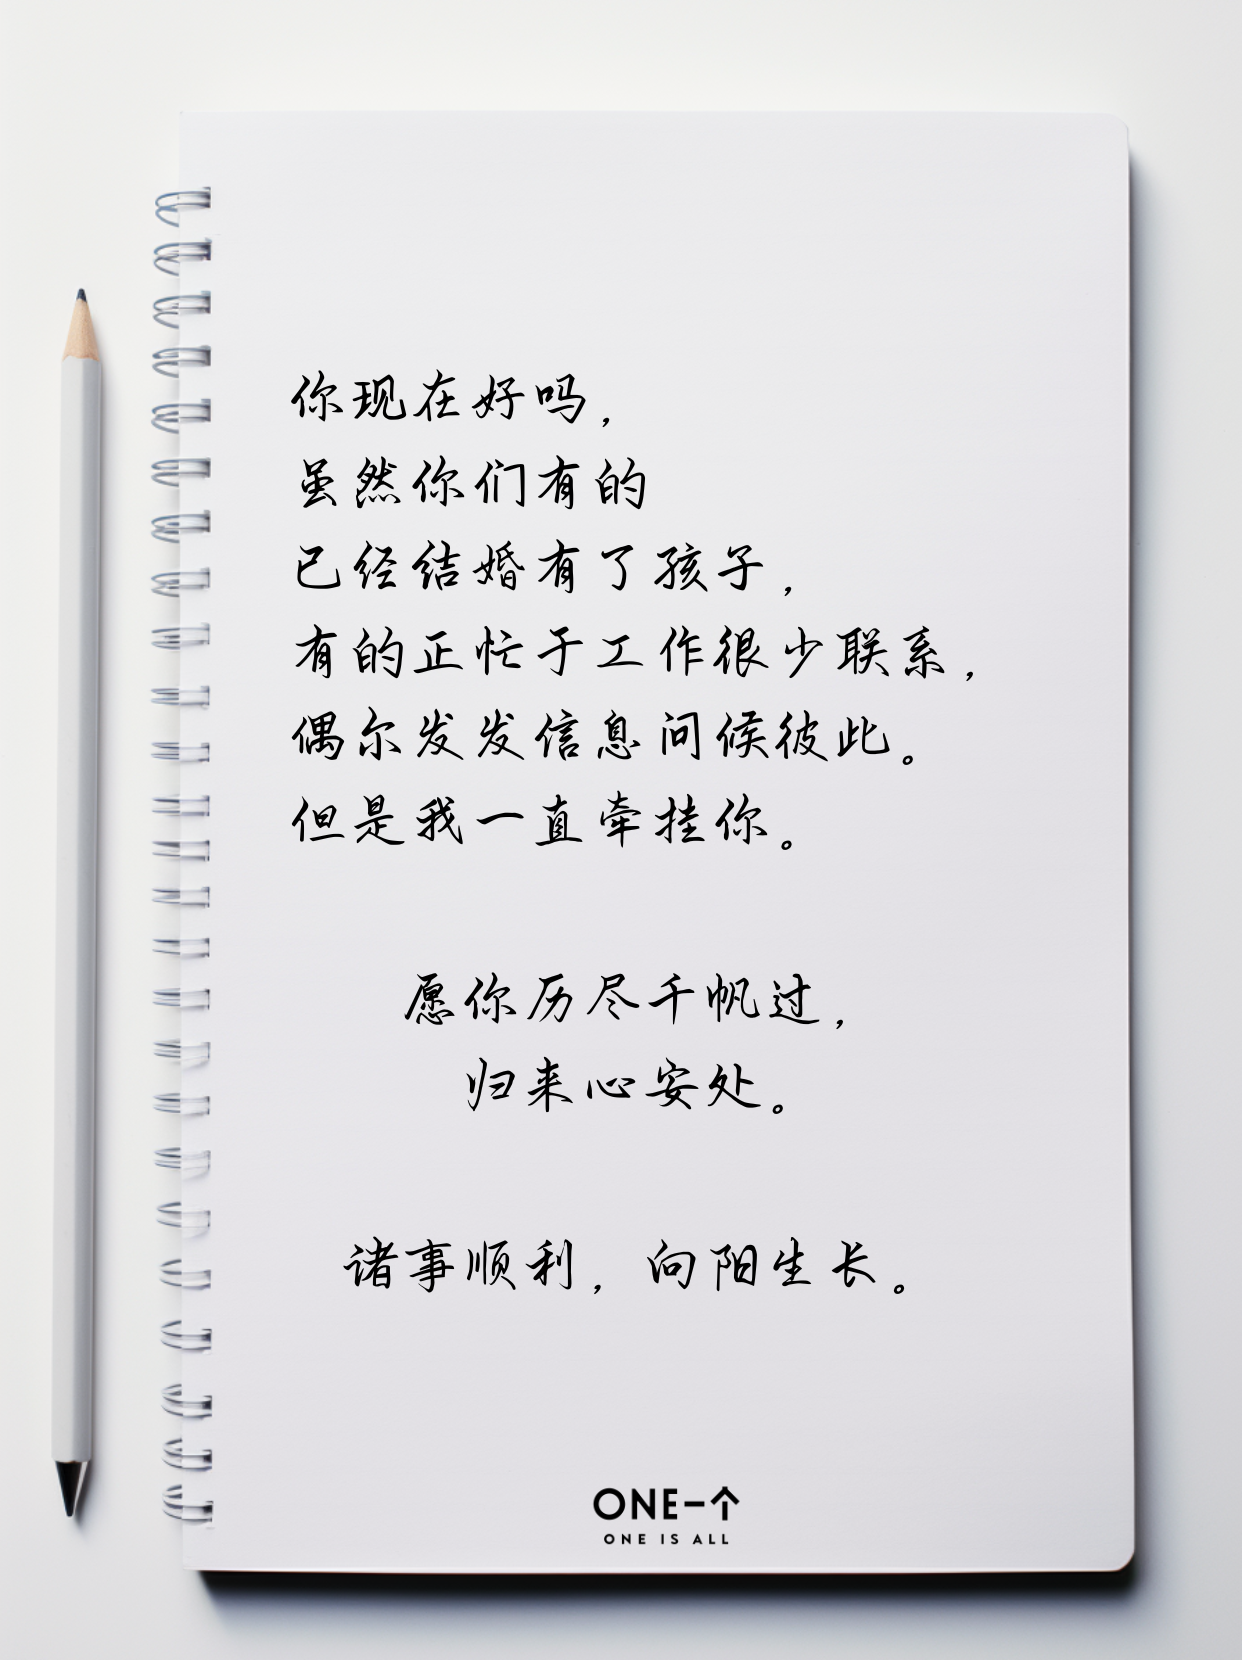 你现在好吗，
虽然你们有的
已经结婚有了孩子，
有的正忙于工作很少联系，
偶尔发发信息问候彼此。
但是我一直牵挂你。
愿你历尽千帆过，
归来心安处。
诸事顺利，向阳生长。
ONE一个
ONE IS ALL